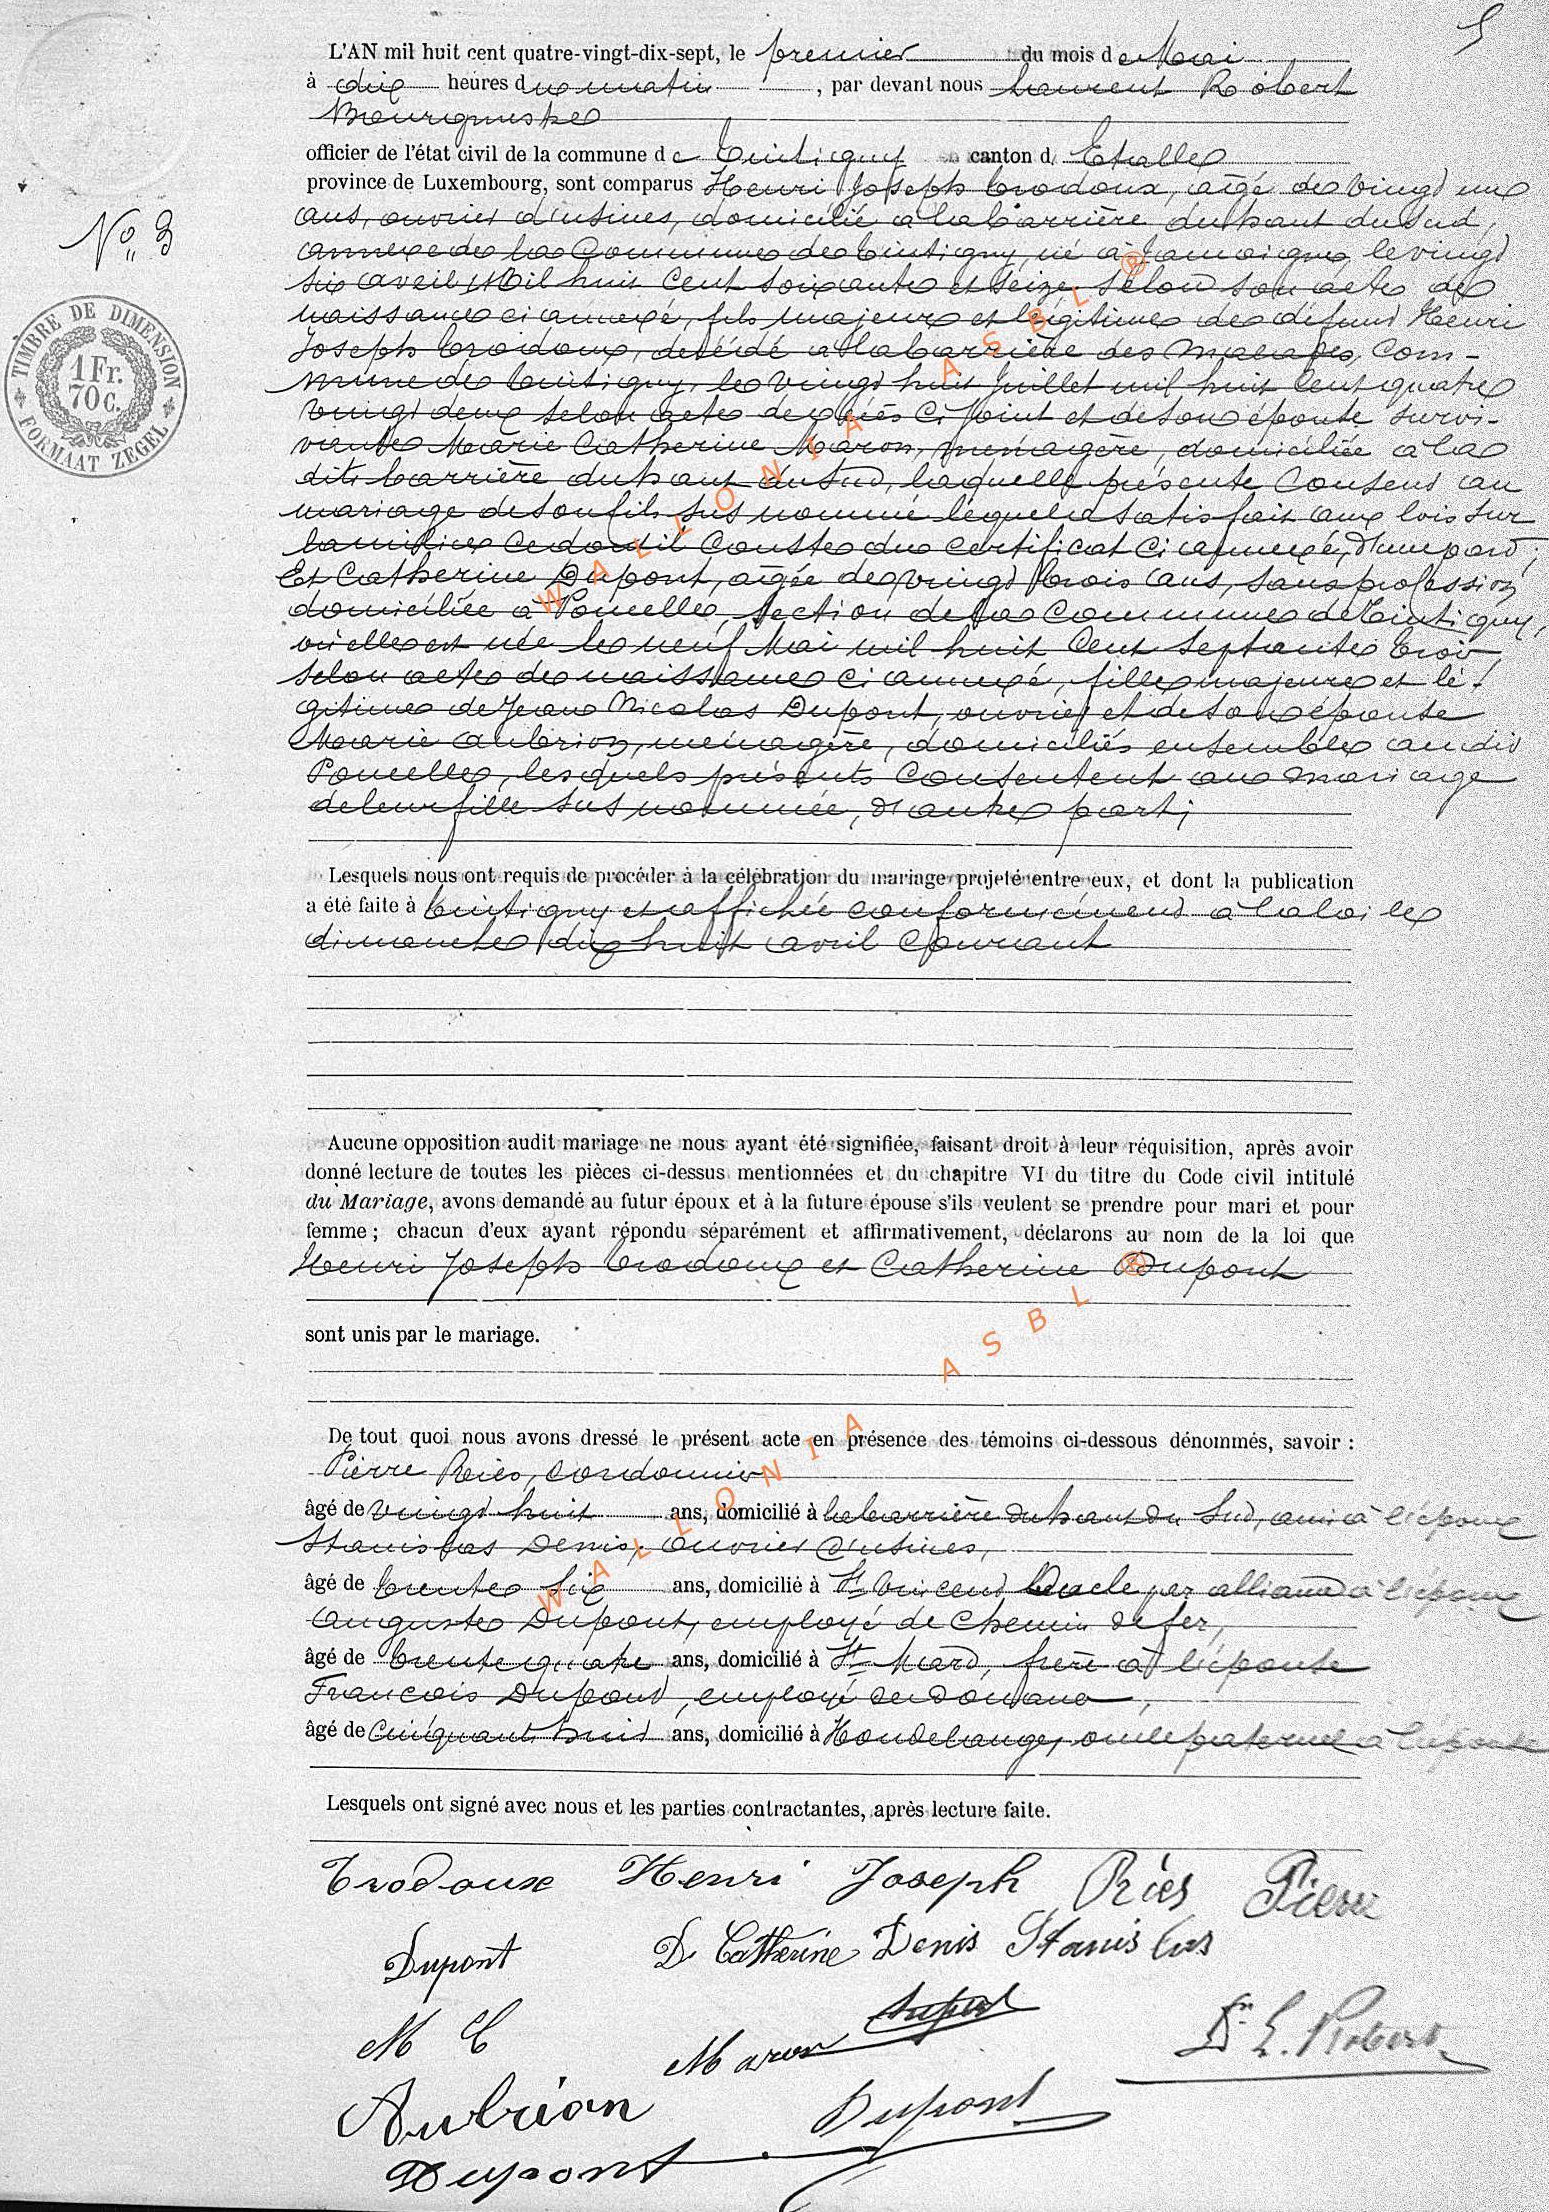 5
L'AN mil huit cent quatre-vingt-dix-sept, le premier du mois de Mai
à dix heures du matin, par devant nous Laurent Robert
Bourgmestre
officier de l'état civil de la commune de Tintigny canton d Etalle
province de Luxembourg, sont comparus Henri Joseph Trodoux, aîgé de vingt un
ans, ouvrier d'usines, domicilié à la barrière du haut du Sud,
annexe de la Commune de Tintigny, né à Jamoigne, le vingt
six avril Mil huit Cent soixante et seize selon son acte de
naissance ci annexé, fils majeur et légitime de défunt Henri
Joseph Trodoux, décédé à la barrière des Macades, Com-
mune de Tintigny, le vingt huit Juillet mil huit Cent quatre
vingt deux selon acte de décès Ci Joint et de son épouse survi-
vante Marie Catherine Maron, ménagère, domiciliée à la
dite barrière du haut du Sud, laquelle présente Consent au
mariage de son fils sus nommé lequel a satisfait aux lois sur
la milice Ce dont il Conste du Certificat Ci annexé, d'une part;
Et Catherine Dupont, aîgée de vingt trois ans, sans profession
domiciliée à Poncelle, section de la Commune de Tintigny,
où elle est née le neuf Mai mil huit Cent septante trois
selon acte de naissance Ci annexé, fille majeure et lé-
gitime de Jean Nicolas Dupont, ouvrier et de son épouse
Marie Aubrion, ménagère, domiciliés ensemble audit
Poncelle, lesquels présents Consentent au mariage
de leur fille sus nommée, d'autre part;
Lesquels nous ont requis de procéder à la célébration du mariage projeté entre eux, et dont la publication
a été faite à Tintigny et affichée conformément à la loi le
dimanche dix huit avril Courant
Aucune opposition audit mariage ne nous ayant été signifiée, faisant droit à leur réquisition, après avoir
donné lecture de toutes les pièces ci-dessus mentionnées et du chapitre VI du titre du Code civil intitulé
du Mariage, avons demandé au futur époux et à la future épouse s'ils veulent se prendre pour mari et pour
femme ; chacun d'eux ayant répondu séparément et affirmativement, déclarons au nom de la loi que
Henri Joseph Trodoux et Catherine Dupont
sont unis par le mariage.
De tout quoi nous avons dressé le présent acte en présence des témoins ci-dessous dénommés, savoir :
Pierre Reies, Cordonnier
âgé de vingt huit ans, domicilié à la barrière du haut du Sud, ami à l'époux
Stanislas Denis, ouvrier d'usines,
âgé de trente six ans, domicilié à St Vincent Oncle par alliance à l'époux
Auguste Dupont, employé de Chemin de fer,
âgé de trente quatre ans, domicilié à St Mard, frère à l'épouse
François Dupont, employé de douane,
âgé de Cinquant huit ans, domicilié à Hondelange, oncle paternel à l'épouse
Lesquels ont signé avec nous et les parties contractantes, après lecture faite.
Trodoux Henri Joseph Riès Pierre
Dupont D Catherine Denis Stanislas
M C Maron Dupont Dr L. Robert
Aubrion Dupont
Dupont
No 3
TIMBRE DE DIMENSION
1 Fr.
70 c.
FORMAAT ZEGEL
WALLONIA ASBL ®
WALLONIA ASBL ®